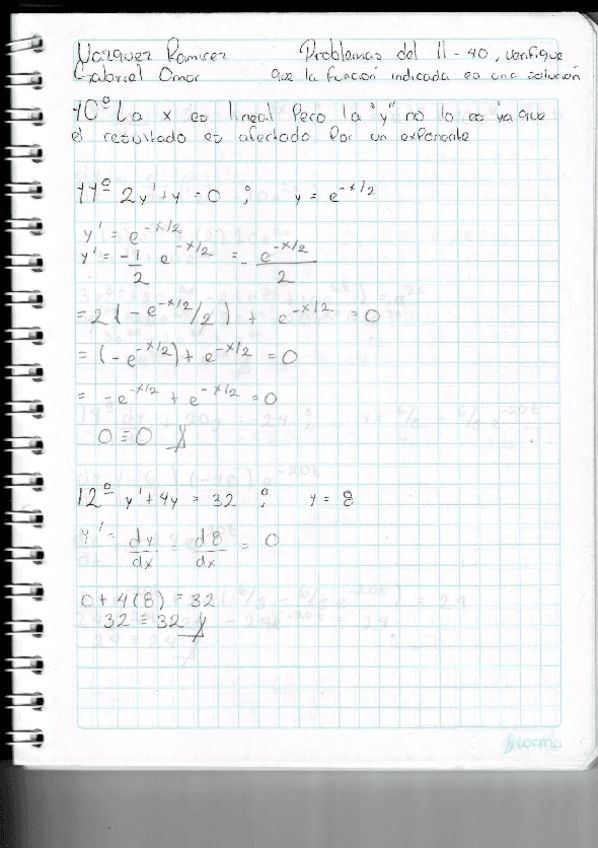 Vazquez Ramirez Problemas del 11-40, verifique
Gabriel Omar que la función indicada es una solución
10º La x es lineal Pero la "y" no lo es ya que
el resultado es afectado Por un exponente
11º 2y' + y = 0 ; y = e^{-x/2}
y' = e^{-x/2}
y' = -1/2 e^{-x/2} = - e^{-x/2}/2
= 2(-e^{-x/2}/2) + e^{-x/2} = 0
= (-e^{-x/2}) + e^{-x/2} = 0
= -e^{-x/2} + e^{-x/2} = 0
0 ≡ 0
12º y' + 4y = 32 ; y = 8
y' = dy/dx = d8/dx = 0
0 + 4(8) = 32
32 ≡ 32
norma